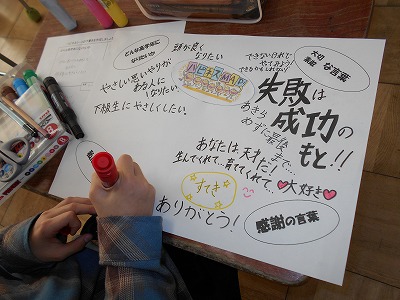 どんな高学年に
なりたいか
頭が良く
なりたい
やさしい思いやりが
ある人に
なりたい。
下級生にやさしくしたい。
大切
な言葉
できないけれど
やってみよう!
失敗は
成功の
もと!!
あきら
めずに最後
まで…
あなたは天才だ!
生んでくれて、育ててくれて…
大好き
すてき
ありがとう!
感謝の言葉